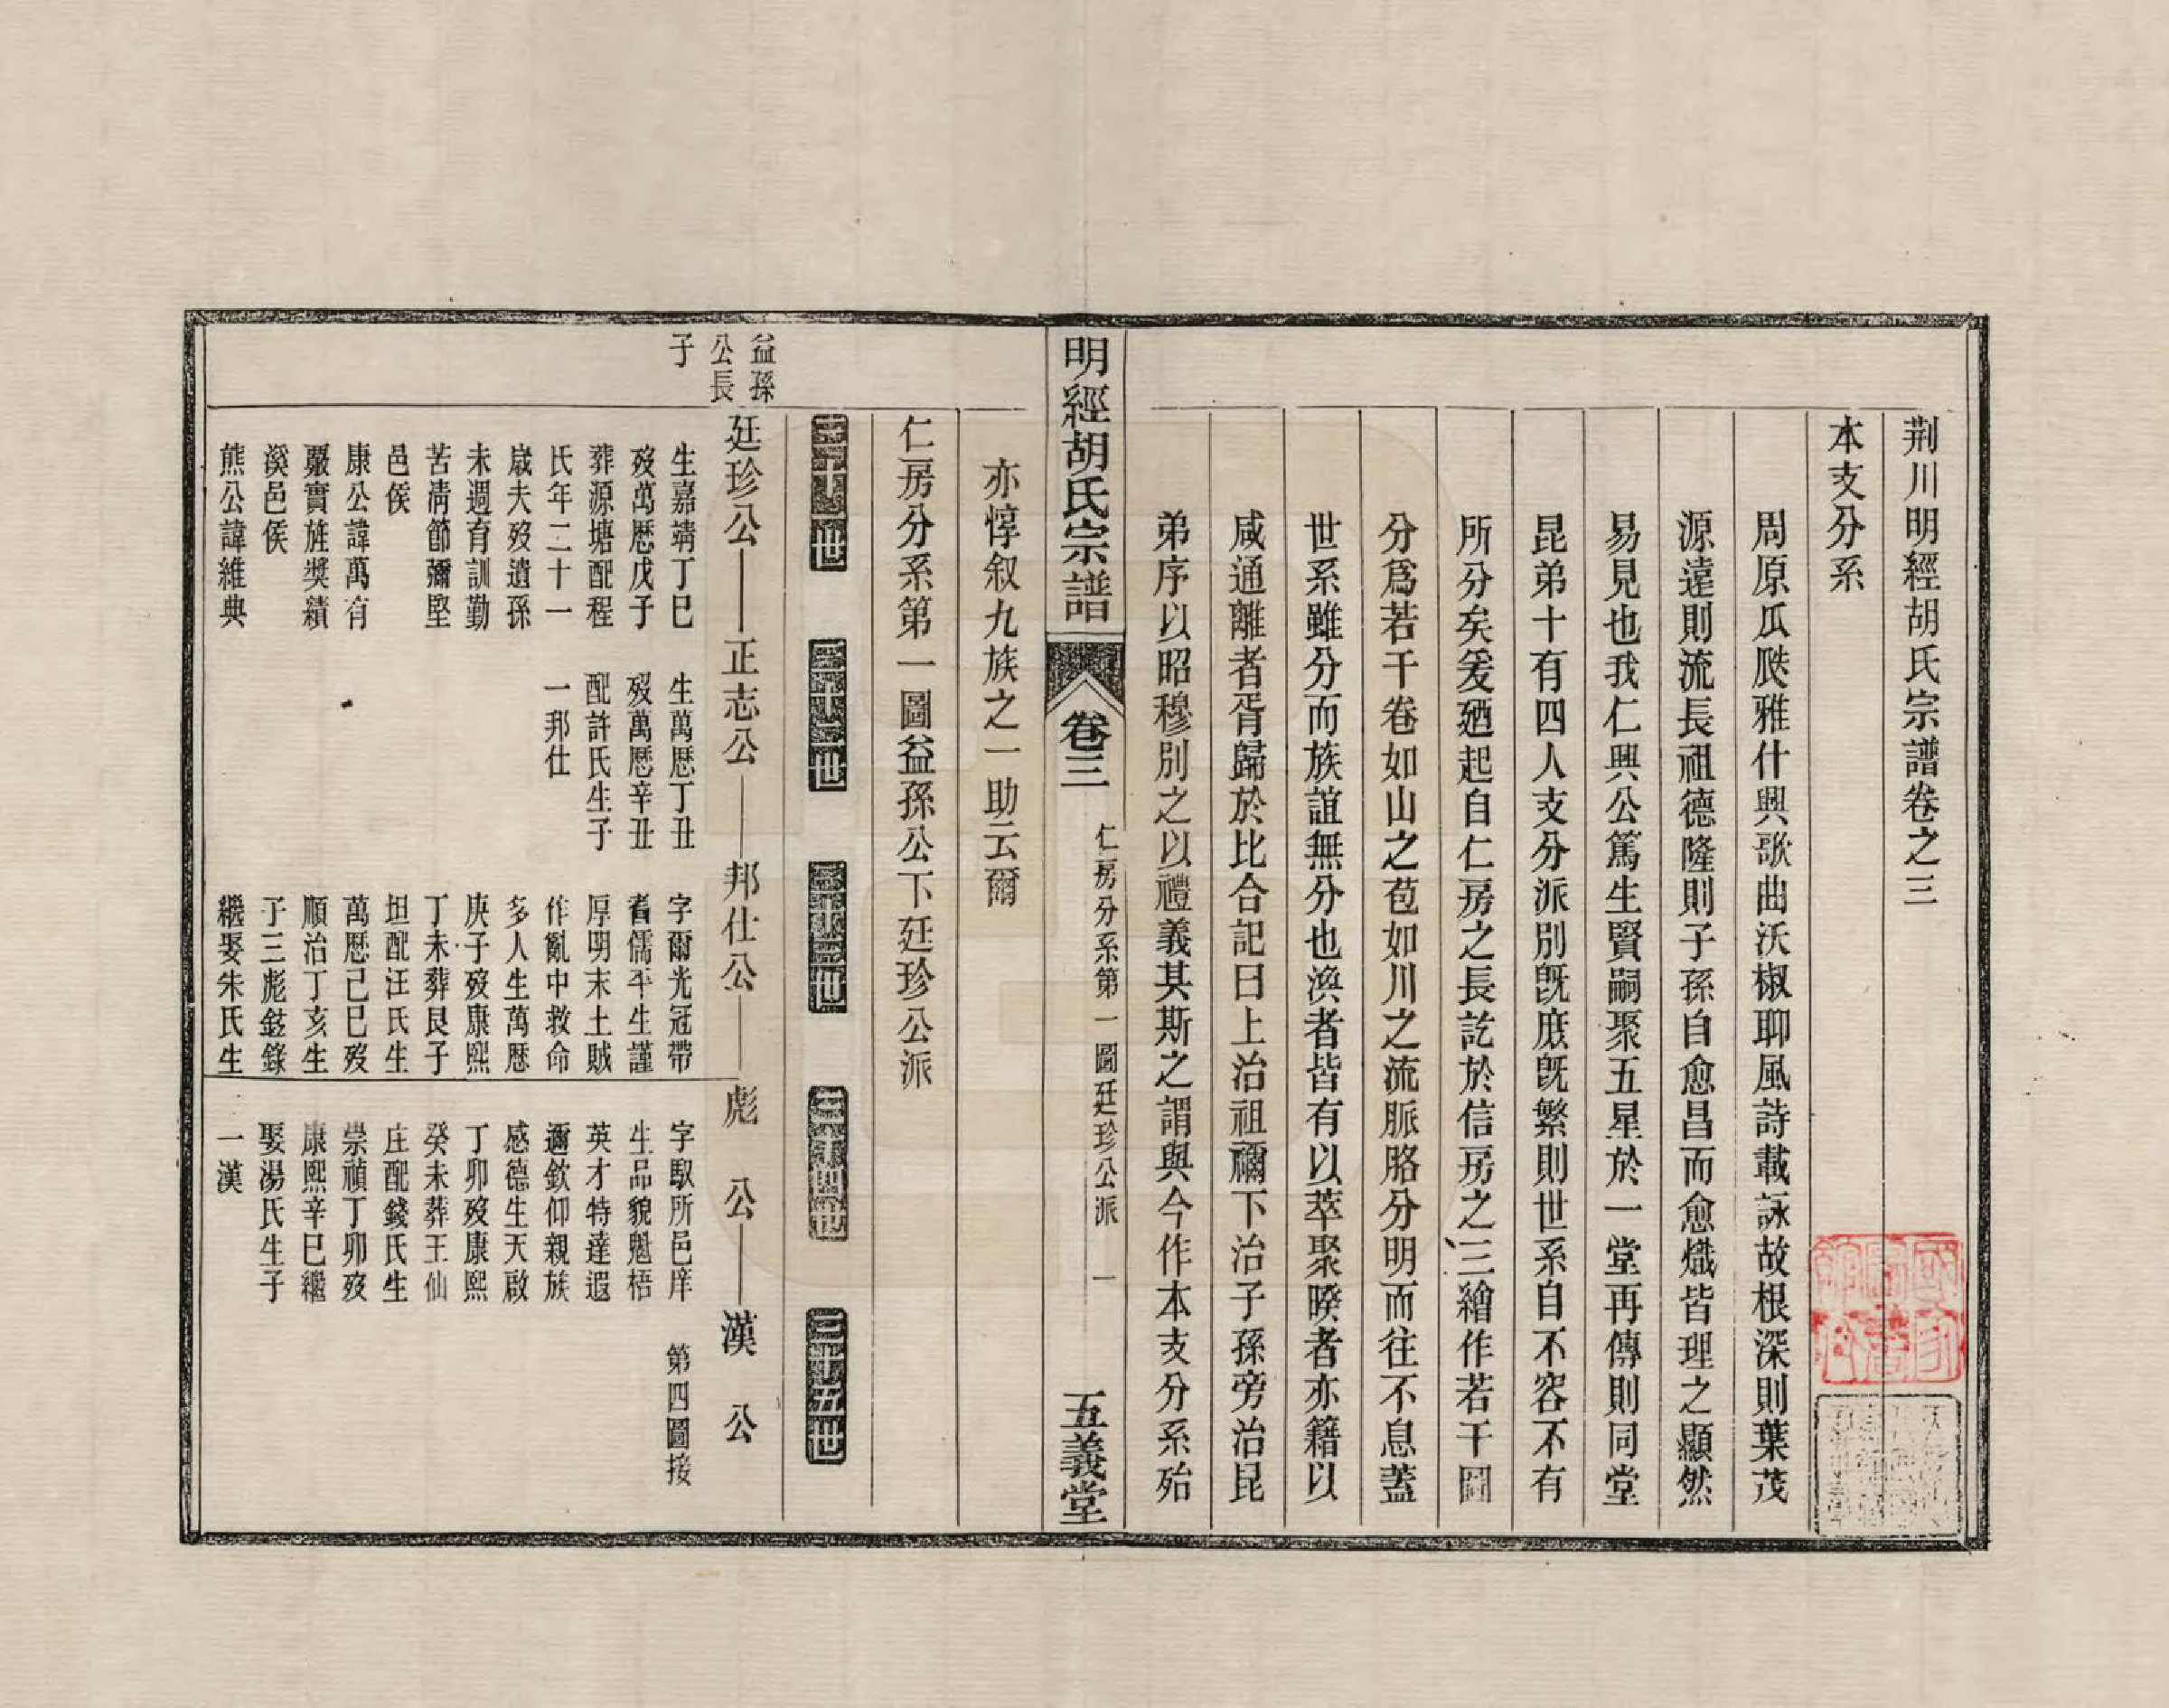 荆川明經胡氏宗譜卷之三
本支分系
周原瓜瓞雅什興歌曲沃椒聊風詩載詠故根深則葉茂
源遠則流長祖德隆則子孫自愈昌而愈熾皆理之顯然
易見也我仁興公篤生賢嗣聚五星於一堂再傳則同堂
昆弟十有四人支分派別旣庶旣繁則世系自不容不有
所分矣爰廼起自仁房之長訖於信房之三繪作若干圖
分爲若干卷如山之苞如川之流脈胳分明而往不息蓋
世系雖分而族誼無分也渙者皆有以萃聚暌者亦籍以
咸通離者胥歸於比合記曰上治祖禰下治子孫旁治昆
弟序以昭穆別之以禮義其斯之謂與今作本支分系殆
明經胡氏宗譜
卷三
仁房分系第一圖廷珍公派
一
五義堂
亦惇叙九族之一助云爾
仁房分系第一圖益孫公下廷珍公派
三十一世
三十二世
三十三世
三十四世
三十五世
益孫
公長
子
廷珍公
正志公
邦仕公
彪公
漢公
生嘉靖丁巳
歿萬歷戊子
葬源塘配程
氏年二十一
歲夫歿遺孫
未週育訓勤
苦淸節彌堅
邑侯
康公諱萬有
嚴實旌獎績
溪邑侯
熊公諱維典
生萬歷丁丑
歿萬歷辛丑
配許氏生子
一邦仕
字爾光冠帶
耆儒平生謹
厚明末土賊
作亂中救命
多人生萬歷
庚子歿康熙
丁未葬艮子
坦配汪氏生
萬歷己巳歿
順治丁亥生
子三彪鉉錄
繼娶朱氏生
字馭所邑庠
生品貌魁梧
英才特達遐
邇欽仰親族
感德生天啟
丁卯歿康熙
癸未葬王仙
庄配錢氏生
崇禎丁卯歿
康熙辛巳繼
娶湯氏生子
一漢
第四圖接